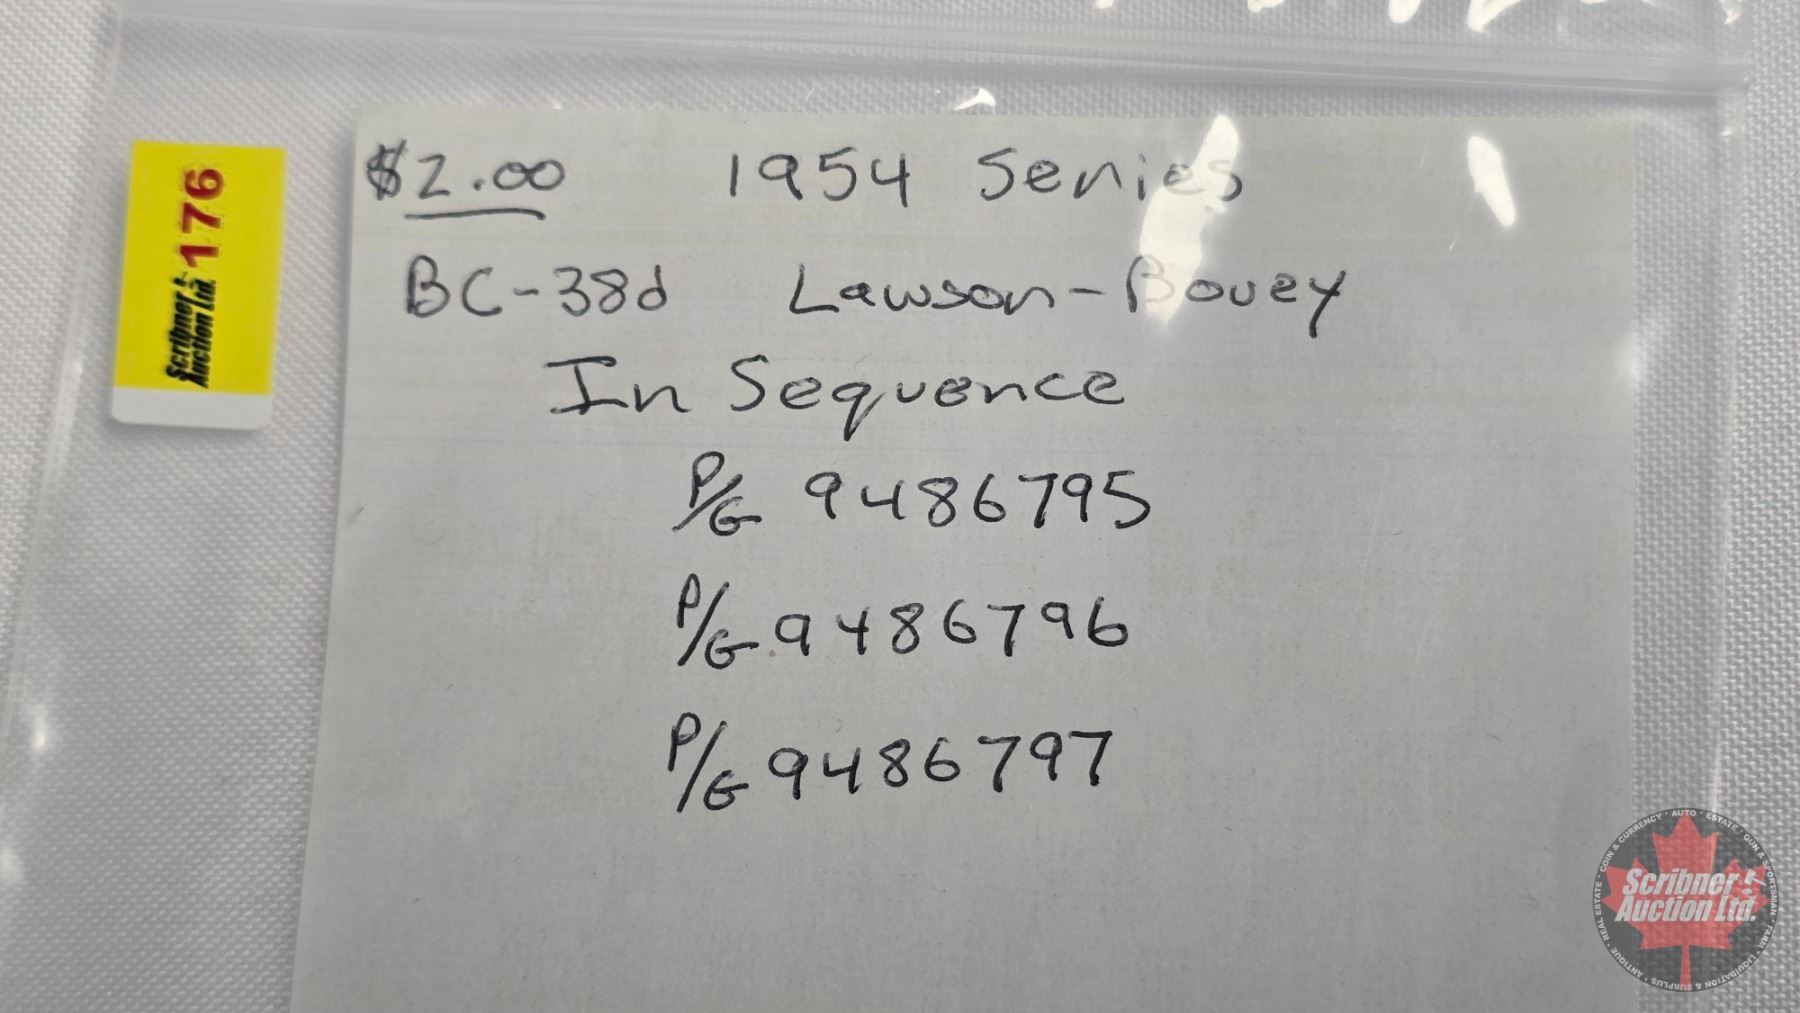 $2.00 1954 Series
BC-38d Lawson-Bouey
In Sequence
P/G 9486795
P/G 9486796
P/G 9486797
176
Scribner Auction Ltd.
Scribner Auction Ltd.
COIN & CURRENCY · AUTO · ESTATE · GUN & SPORTSMAN · FARM · LIQUIDATION & SURPLUS · ANTIQUE · REAL ESTATE